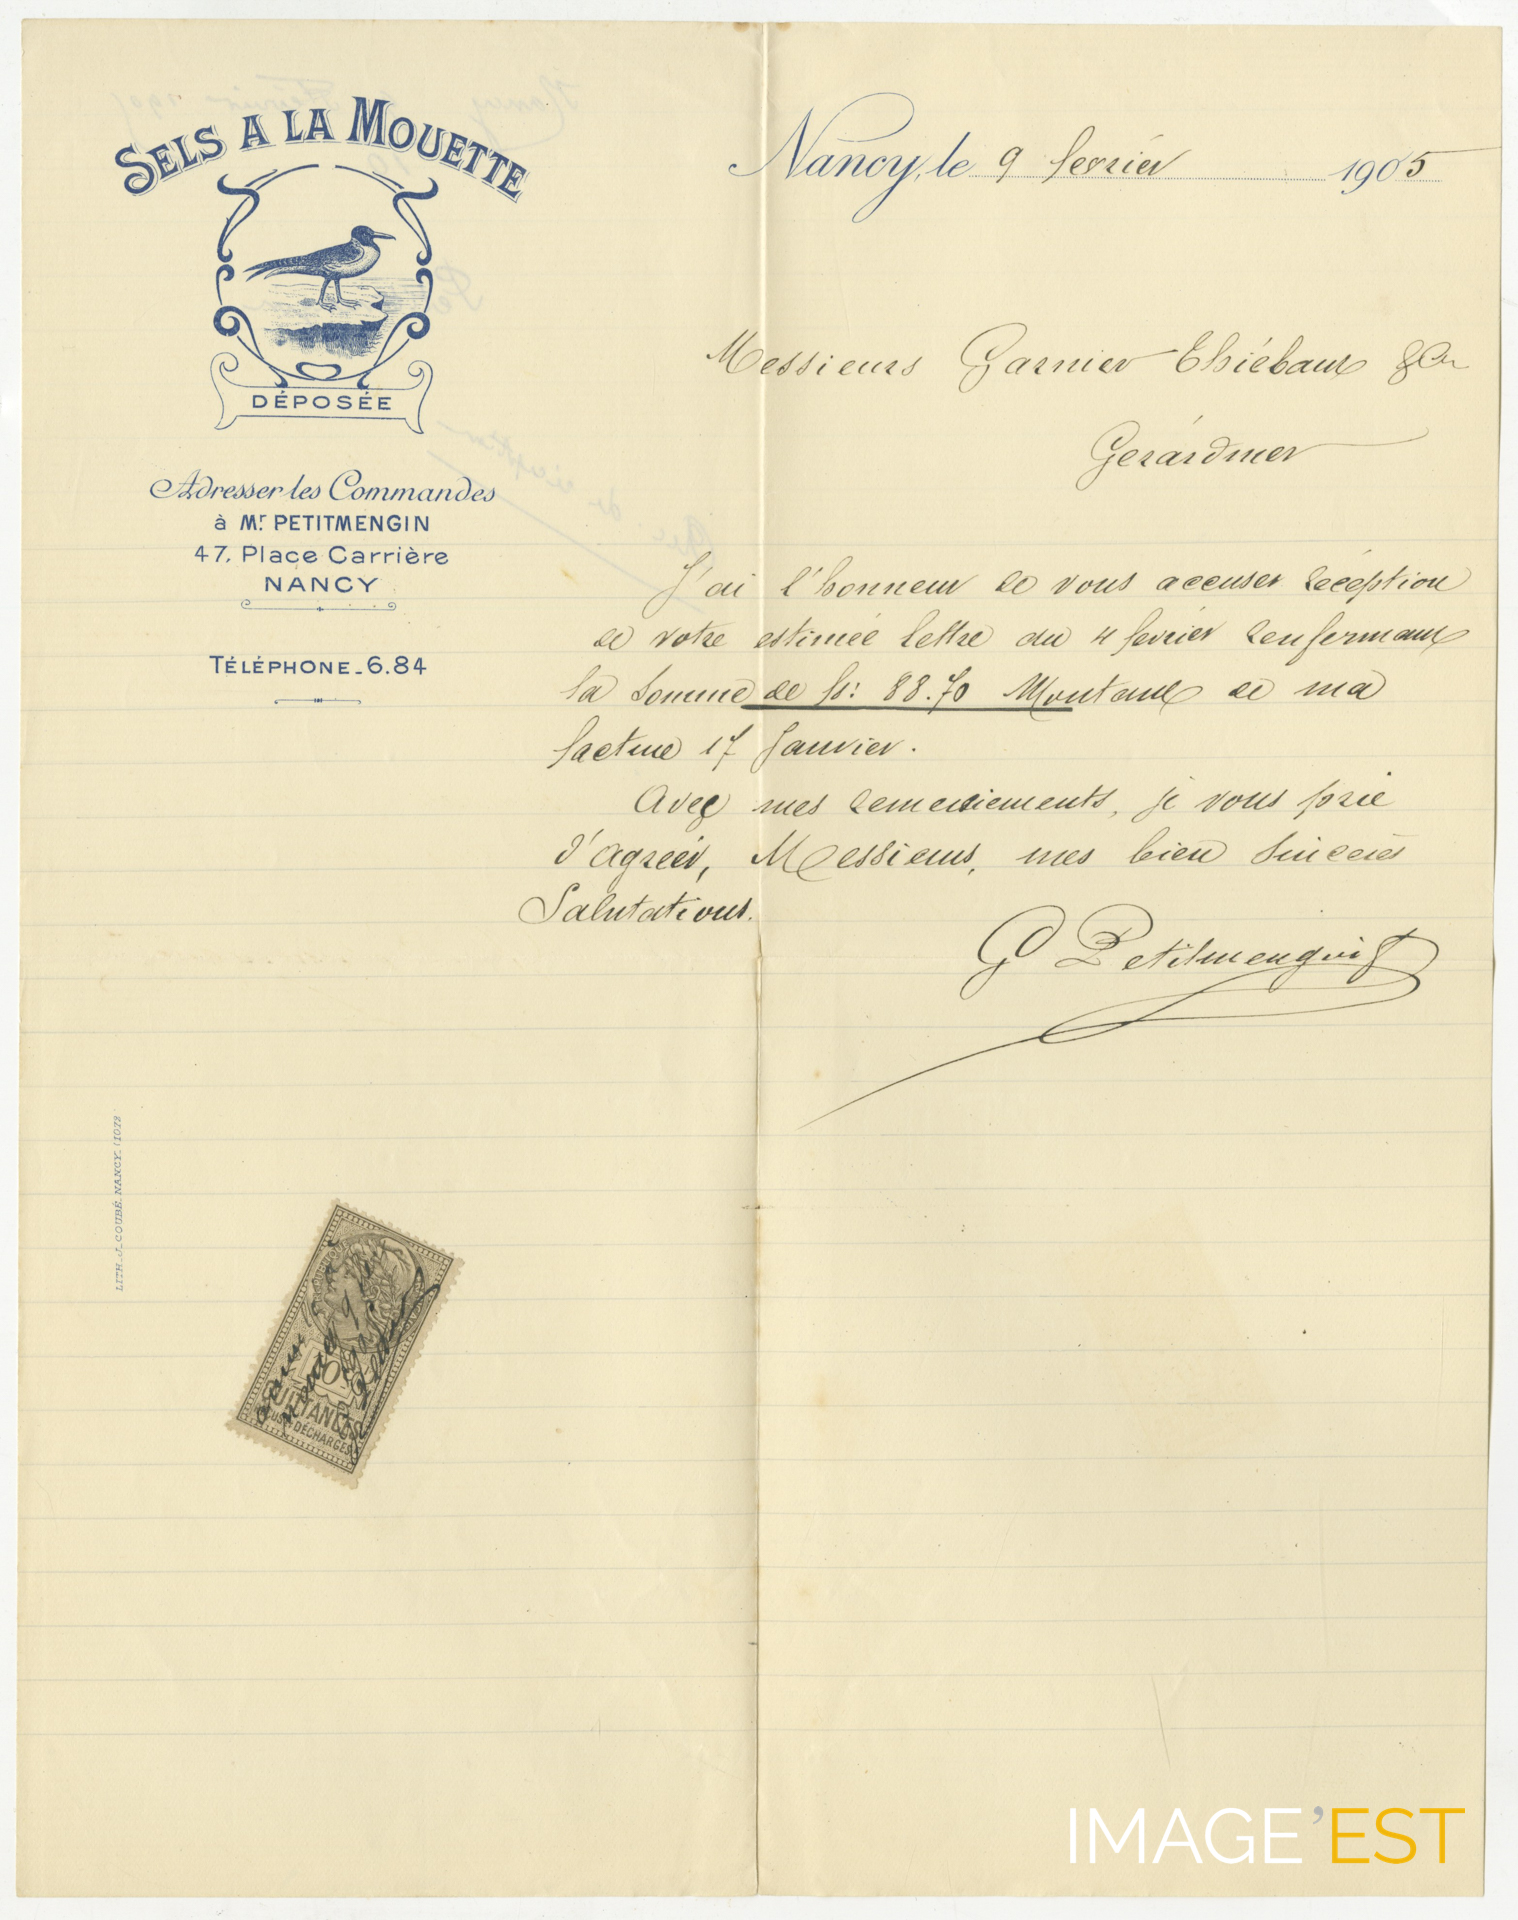 SELS A LA MOUETTE
DÉPOSÉE
Adresser les Commandes
à Mr PETITMENGIN
47, Place Carrière
NANCY
TÉLÉPHONE_6.84
Nancy, le 9 fevrier 1905
Messieurs Garnier Thiébaux & Cie
Gerardmer
J'ai l'honneur de vous accuser réception
de votre estimée lettre du 4 fevrier renfermant
la somme de fr: 88.70 Montant de ma
facture 17 Janvier.
Avec mes remerciements, je vous prie
d'agréer, Messieurs, mes bien sincères
Salutations.
G Petitmengin
LITH. J. COUBÉ. NANCY. (1073
10
QUITTANCES
DÉCHARGES
IMAGE'EST